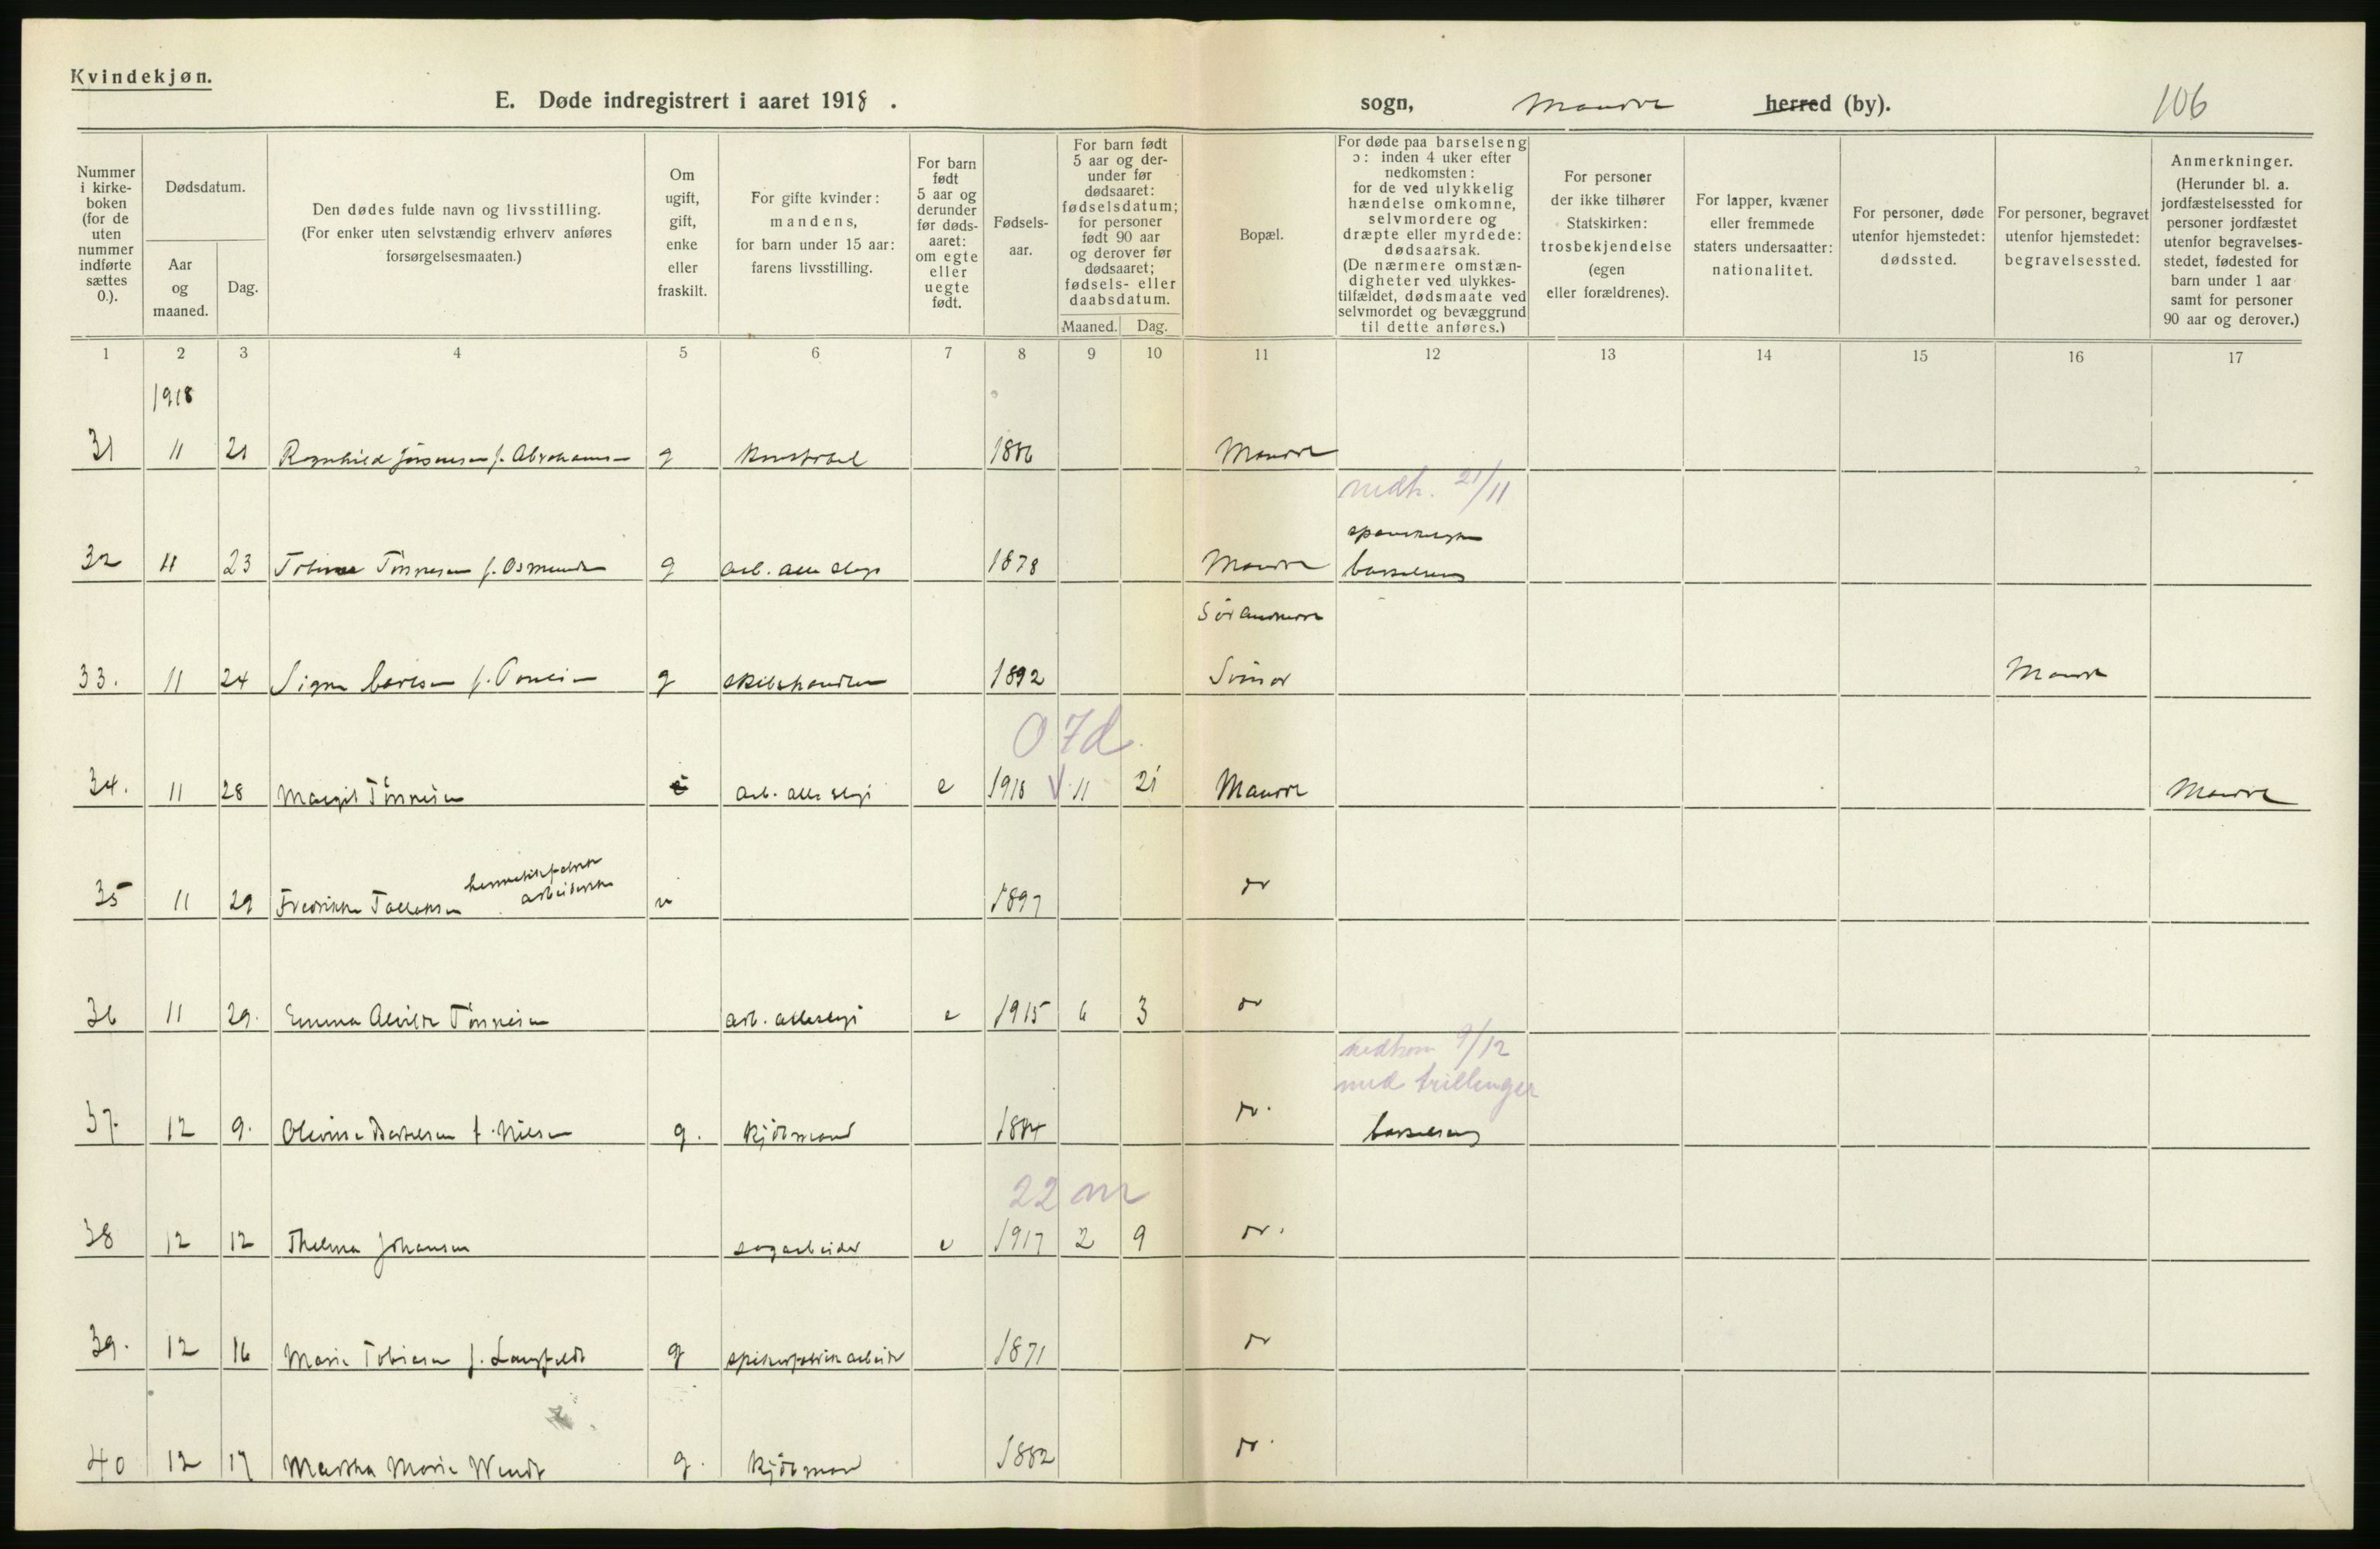 Kvindekjøn.
E. Døde indregistrert i aaret 1918.
sogn, herred (by).
106
Nummer i kirke-boken (for de uten nummer indførte sættes 0.).
Dødsdatum.
Aar og maaned.
Dag.
Den dødes fulde navn og livsstilling. (For enker uten selvstændig erhverv anføres forsørgelsesmaaten.)
Om ugift, gift, enke eller fraskilt.
For gifte kvinder: mandens, for barn under 15 aar: farens livsstilling.
For barn født 5 aar og derunder før døds-aaret: om egte eller uegte født.
Fødsels-aar.
For barn født 5 aar og der-under før dødsaaret: fødselsdatum; for personer født 90 aar og derover før dødsaaret; fødsels- eller daabsdatum.
Maaned.
Dag.
Bopæl.
For døde paa barselseng ɔ: inden 4 uker efter nedkomsten: for de ved ulykkelig hændelse omkomne, selvmordere og dræpte eller myrdede: dødsaarsak. (De nærmere omstæn-digheter ved ulykkes-tilfældet, dødsmaate ved selvmordet og bevæggrund til dette anføres.)
For personer der ikke tilhører Statskirken: trosbekjendelse (egen eller forældrenes).
For lapper, kvæner eller fremmede staters undersaatter: nationalitet.
For personer, døde utenfor hjemstedet: dødssted.
For personer, begravet utenfor hjemstedet: begravelsessted.
Anmerkninger. (Herunder bl. a. jordfæstelsessted for personer jordfæstet utenfor begravelses-stedet, fødested for barn under 1 aar samt for personer 90 aar og derover.)
1 2 3 4 5 6 7 8 9 10 11 12 13 14 15 16 17
1918
31 11 21 Ragnhild f. g 1886
nedk. 21/11
32 11 23 Tønnesen f. g arb. alle slags 1878 barselseng
33. 11 24 Signe f. g 1892
0 7d.
34. 11 28 Margit Tønnesen arb. alle slags e 1918 11 21
35 11 29 Fredrikke Tallaksen arbeiderske u 1897 do
36 11 29. Emma Alvilde Tønnesen arb. alleslags e 1915 6 3 do
nedkom 9/12
med trillinger
37. 12 9. f. Nilsen g. kjøbmand 1884 do. barselseng
22 m
38 12 12 Thelma Johansen sagarbeider e 1917 2 9 do.
39. 12 16 Marie Tobiasen f. Langfeldt g spikerfabrikarbeider 1871 do
40 12 17 Martha Marie Wendt g. kjøbmand 1882 do.